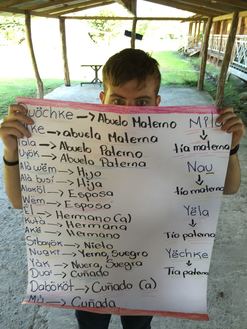 wöchke → Abuelo Materno
ke → abuela Materna
Tala → Abuelo Paterno
Uyök → Abuela Paterna
Alà wẽm → Hijo
Alà busi → Hija
Alaköl → Esposa
Wẽm → Esposo
El → Hermano (a)
Kuta → Hermana
Akë → Hermano
Sibayök → Nieto
Nuakt → Yerno, Suegro
Yàk → Nuera, Suegra
Dua → Cuñado
Dabököt → Cuñado (a)
→ Cuñada
Mila
↓
tía materna
Nau
↓
tía materna
Yëla
↓
tía paterna
Yëchke
↓
Tía paterna